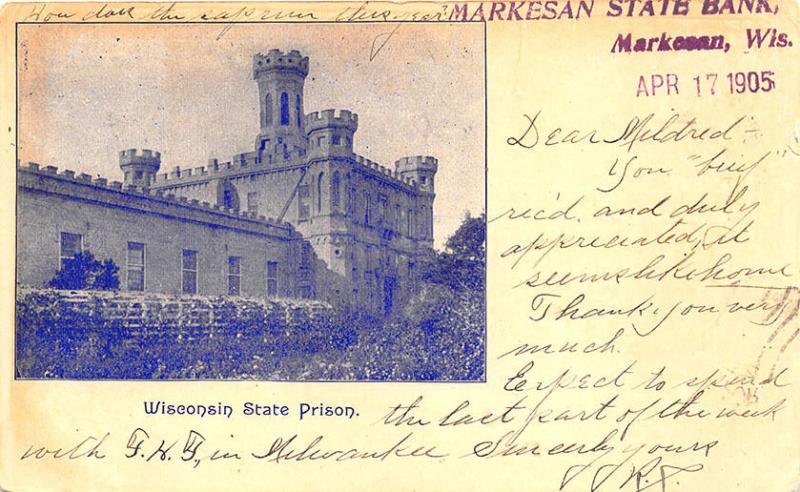 You dont the
this year?
MARKESAN STATE BANK,
Markesan, Wis.
APR 17 1905
Dear Mildred -
You "buy"
rec'd. and duly
appreciated, it
seems like home
Thank you very
much.
Expect to spend
the last part of the week
with F.K.F., in Milwaukee Sincerely yours
R.F.
Wisconsin State Prison.